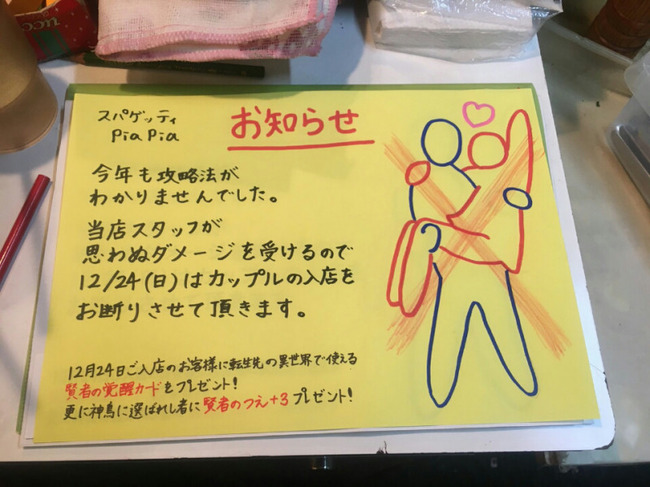 スパゲッティ
PiaPia
お知らせ
今年も攻略法が
わかりませんでした。
当店スタッフが
思わぬダメージを受けるので
12/24(日)はカップルの入店を
お断りさせて頂きます。
12月24日ご入店のお客様に転生先の異世界で使える
賢者の覚醒カードをプレゼント!
更に神鳥に選ばれし者に賢者のつえ+3プレゼント!